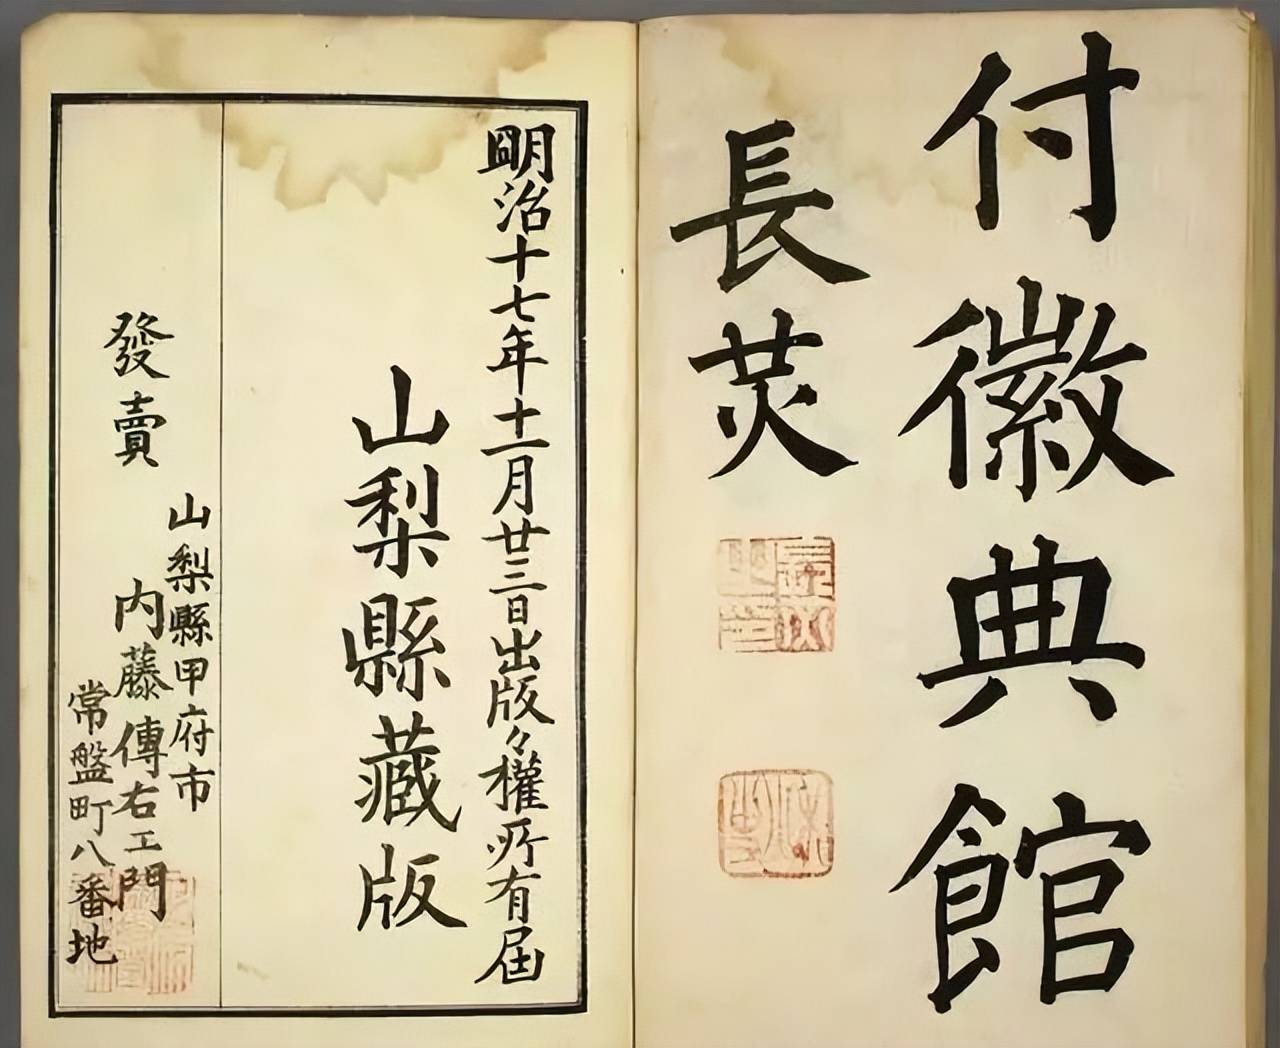 付徽典館
長炗
朙治十七年十一月廿三日出版々權所有届
山梨縣藏版
發賣
山梨縣甲府市
内藤傳右エ門
常盤町八番地